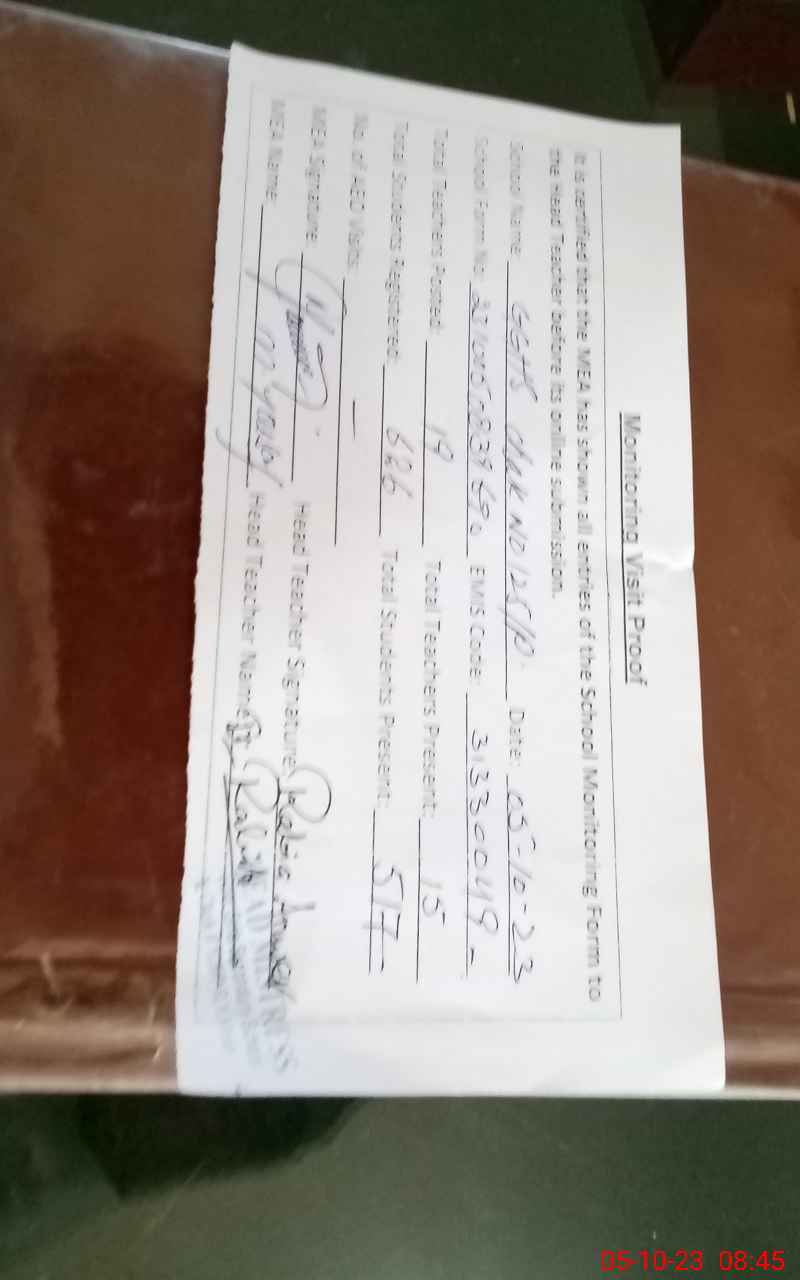 Monitoring Visit Proof
It is certified that the MEA has shown all entries of the School Monitoring Form to
the Head Teacher before its online submission.
School Name: GGHS chak NO 125/P. Date: 05-10-23
School Form No: EMIS Code: 31330049-
Total Teachers Posted: 19 Total Teachers Present: 15
Total Students Registered: 626 Total Students Present: 517
No. of AEO Visits: —
MEA Signature: Head Teacher Signature: Rabia
MEA Name: Head Teacher Name: Rabia
HEADMISTRESS
05-10-23 08:45